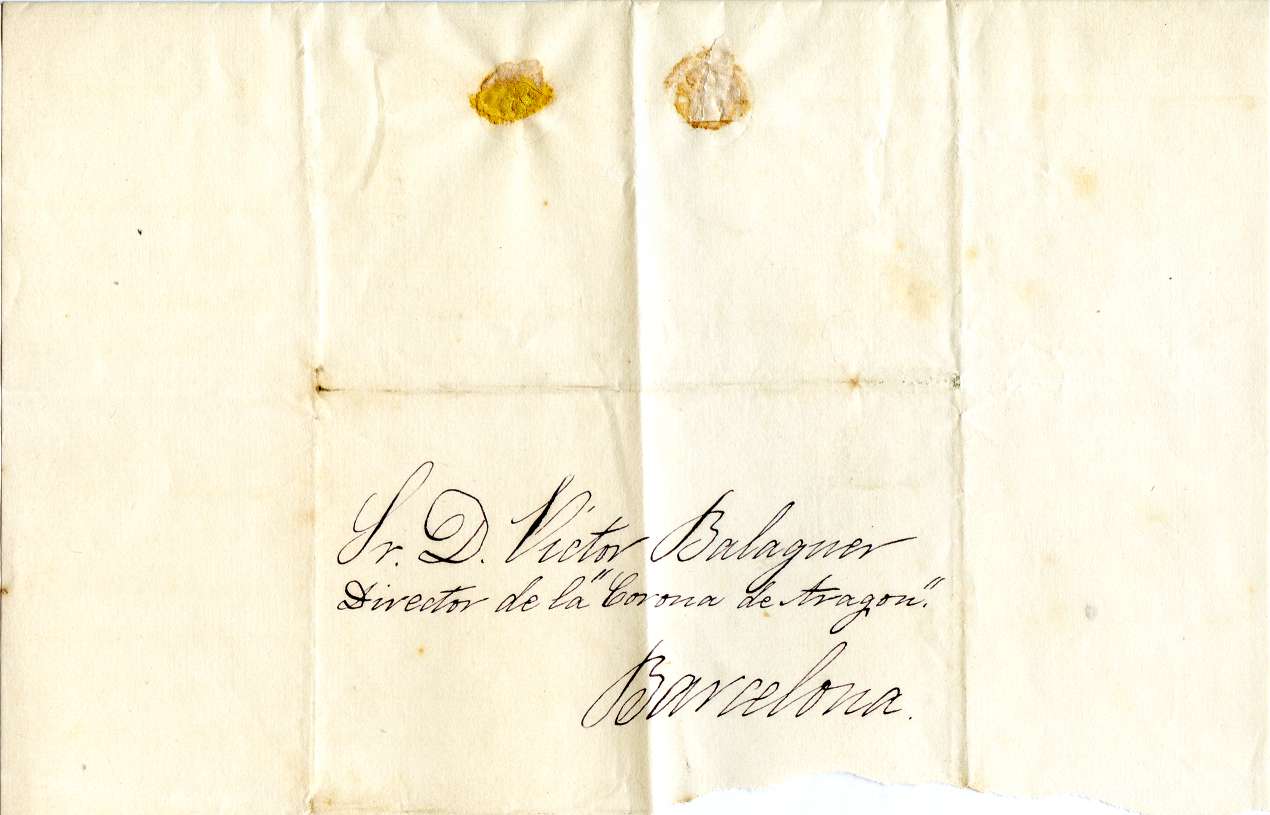 Sr. D. Victor Balaguer
Director de la "Corona de Aragon".
Barcelona.